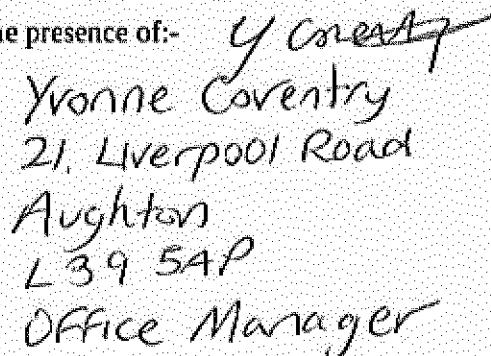 he presence of:- Y Coventry
Yvonne Coventry
21, Liverpool Road
Aughton
L39 5AP
Office Manager